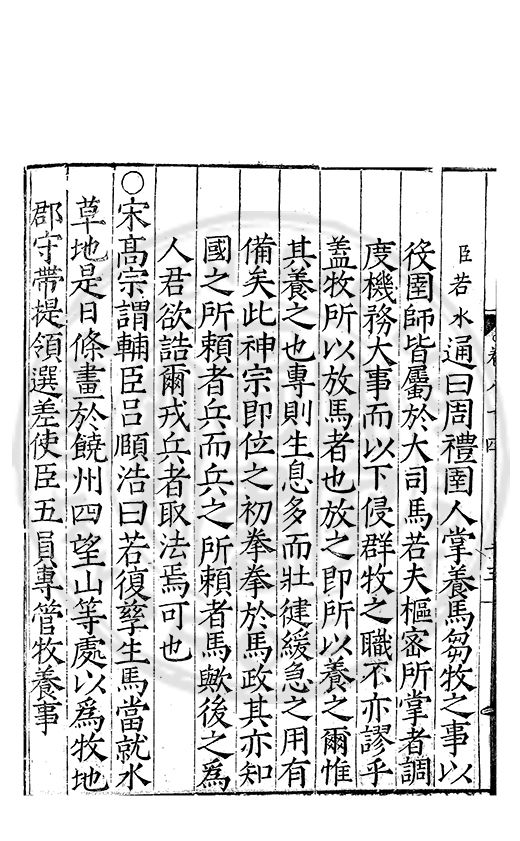 臣若水通曰周禮圉人掌養馬芻牧之事以
役圉師皆屬於大司馬若夫樞密所掌者調
度機務大事而以下侵群牧之職不亦謬乎
蓋牧所以放馬者也放之即所以養之爾惟
其養之也專則生息多而壯健緩急之用有
備矣此神宗即位之初拳拳於馬政其亦知
國之所頼者兵而兵之所頼者馬歟後之爲
人君欲詰爾戎兵者取法焉可也
○宋高宗謂輔臣吕頤浩曰若復孳生馬當就水
草地是日條畫於饒州四望山等處以爲牧地
郡守帶提領選差使臣五員專管牧養事